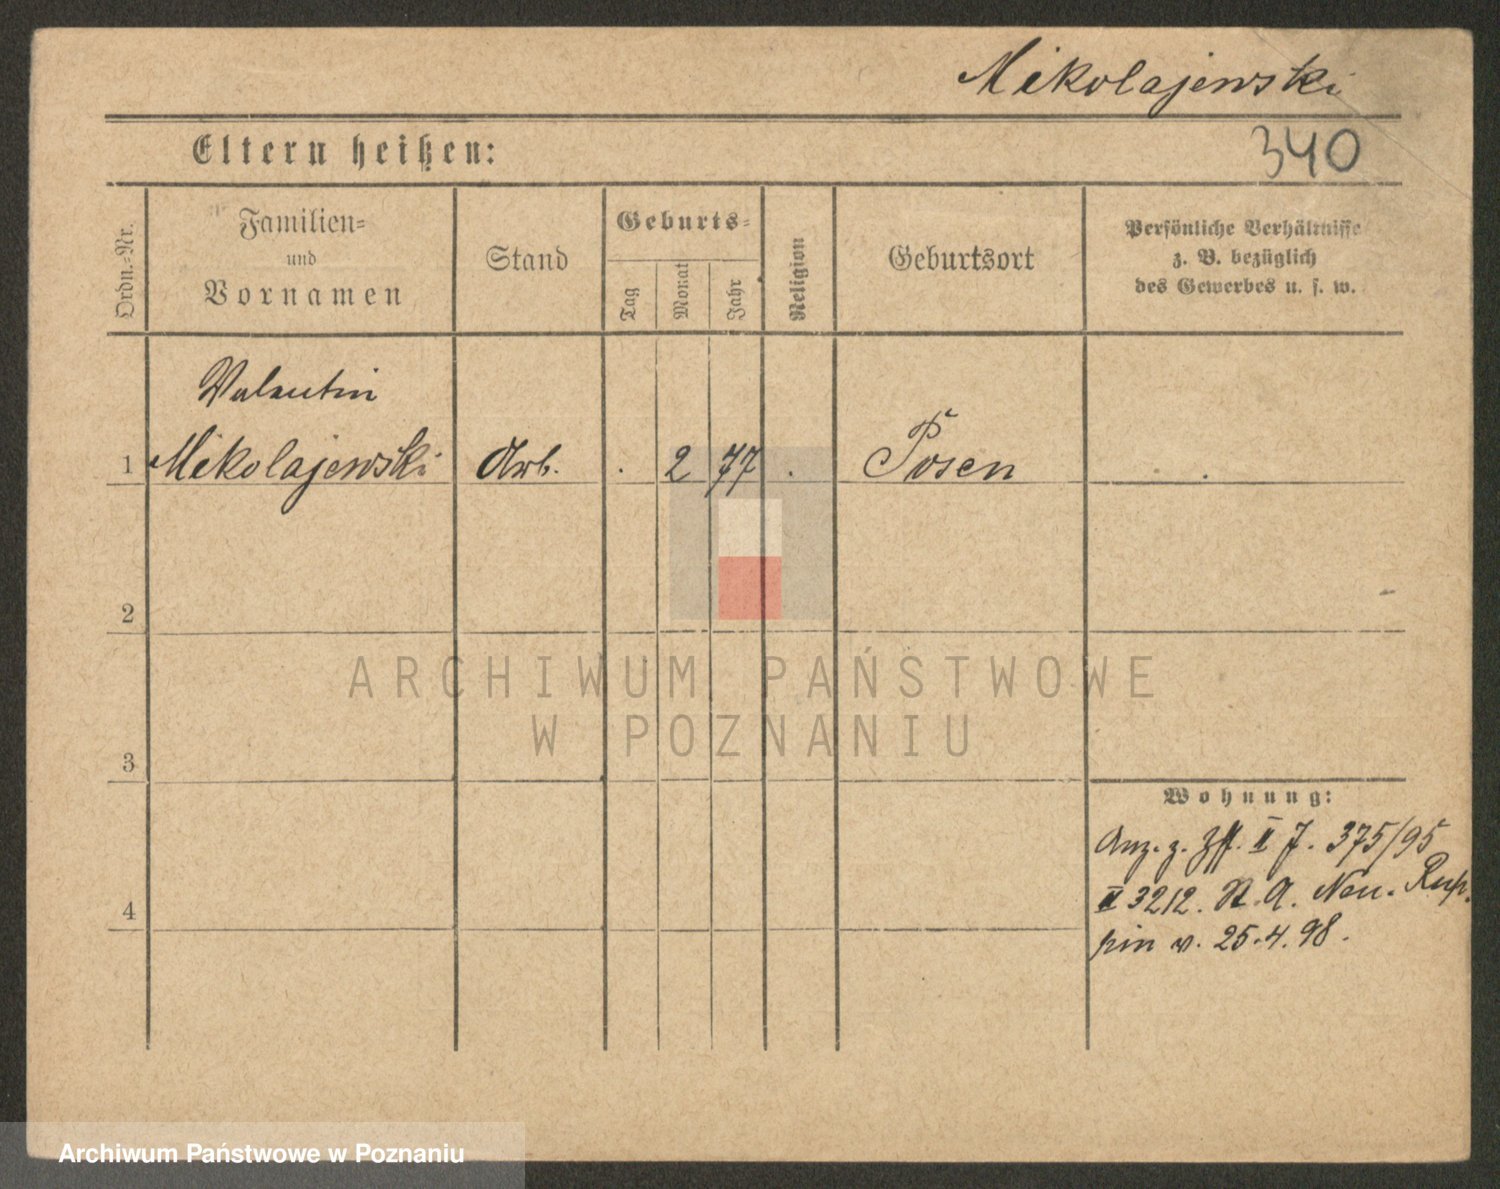 Mikolajewski
Eltern heißen:
340
Ordn.-Nr.
Familien-
und
Vornamen
Stand
Geburts-
Tag
Monat
Jahr
Religion
Geburtsort
Persönliche Verhältnisse
z. B. bezüglich
des Gewerbes u. s. w.
Valentin
1 Mikolajewski Arb. . 2 77 . Posen .
2
3
4
Wohnung:
Anz. z. Zff. II J. 375/95
II 3212. St. A. Neu-Rup-
pin v. 25.4.98.
ARCHIWUM PAŃSTWOWE
W POZNANIU
Archiwum Państwowe w Poznaniu